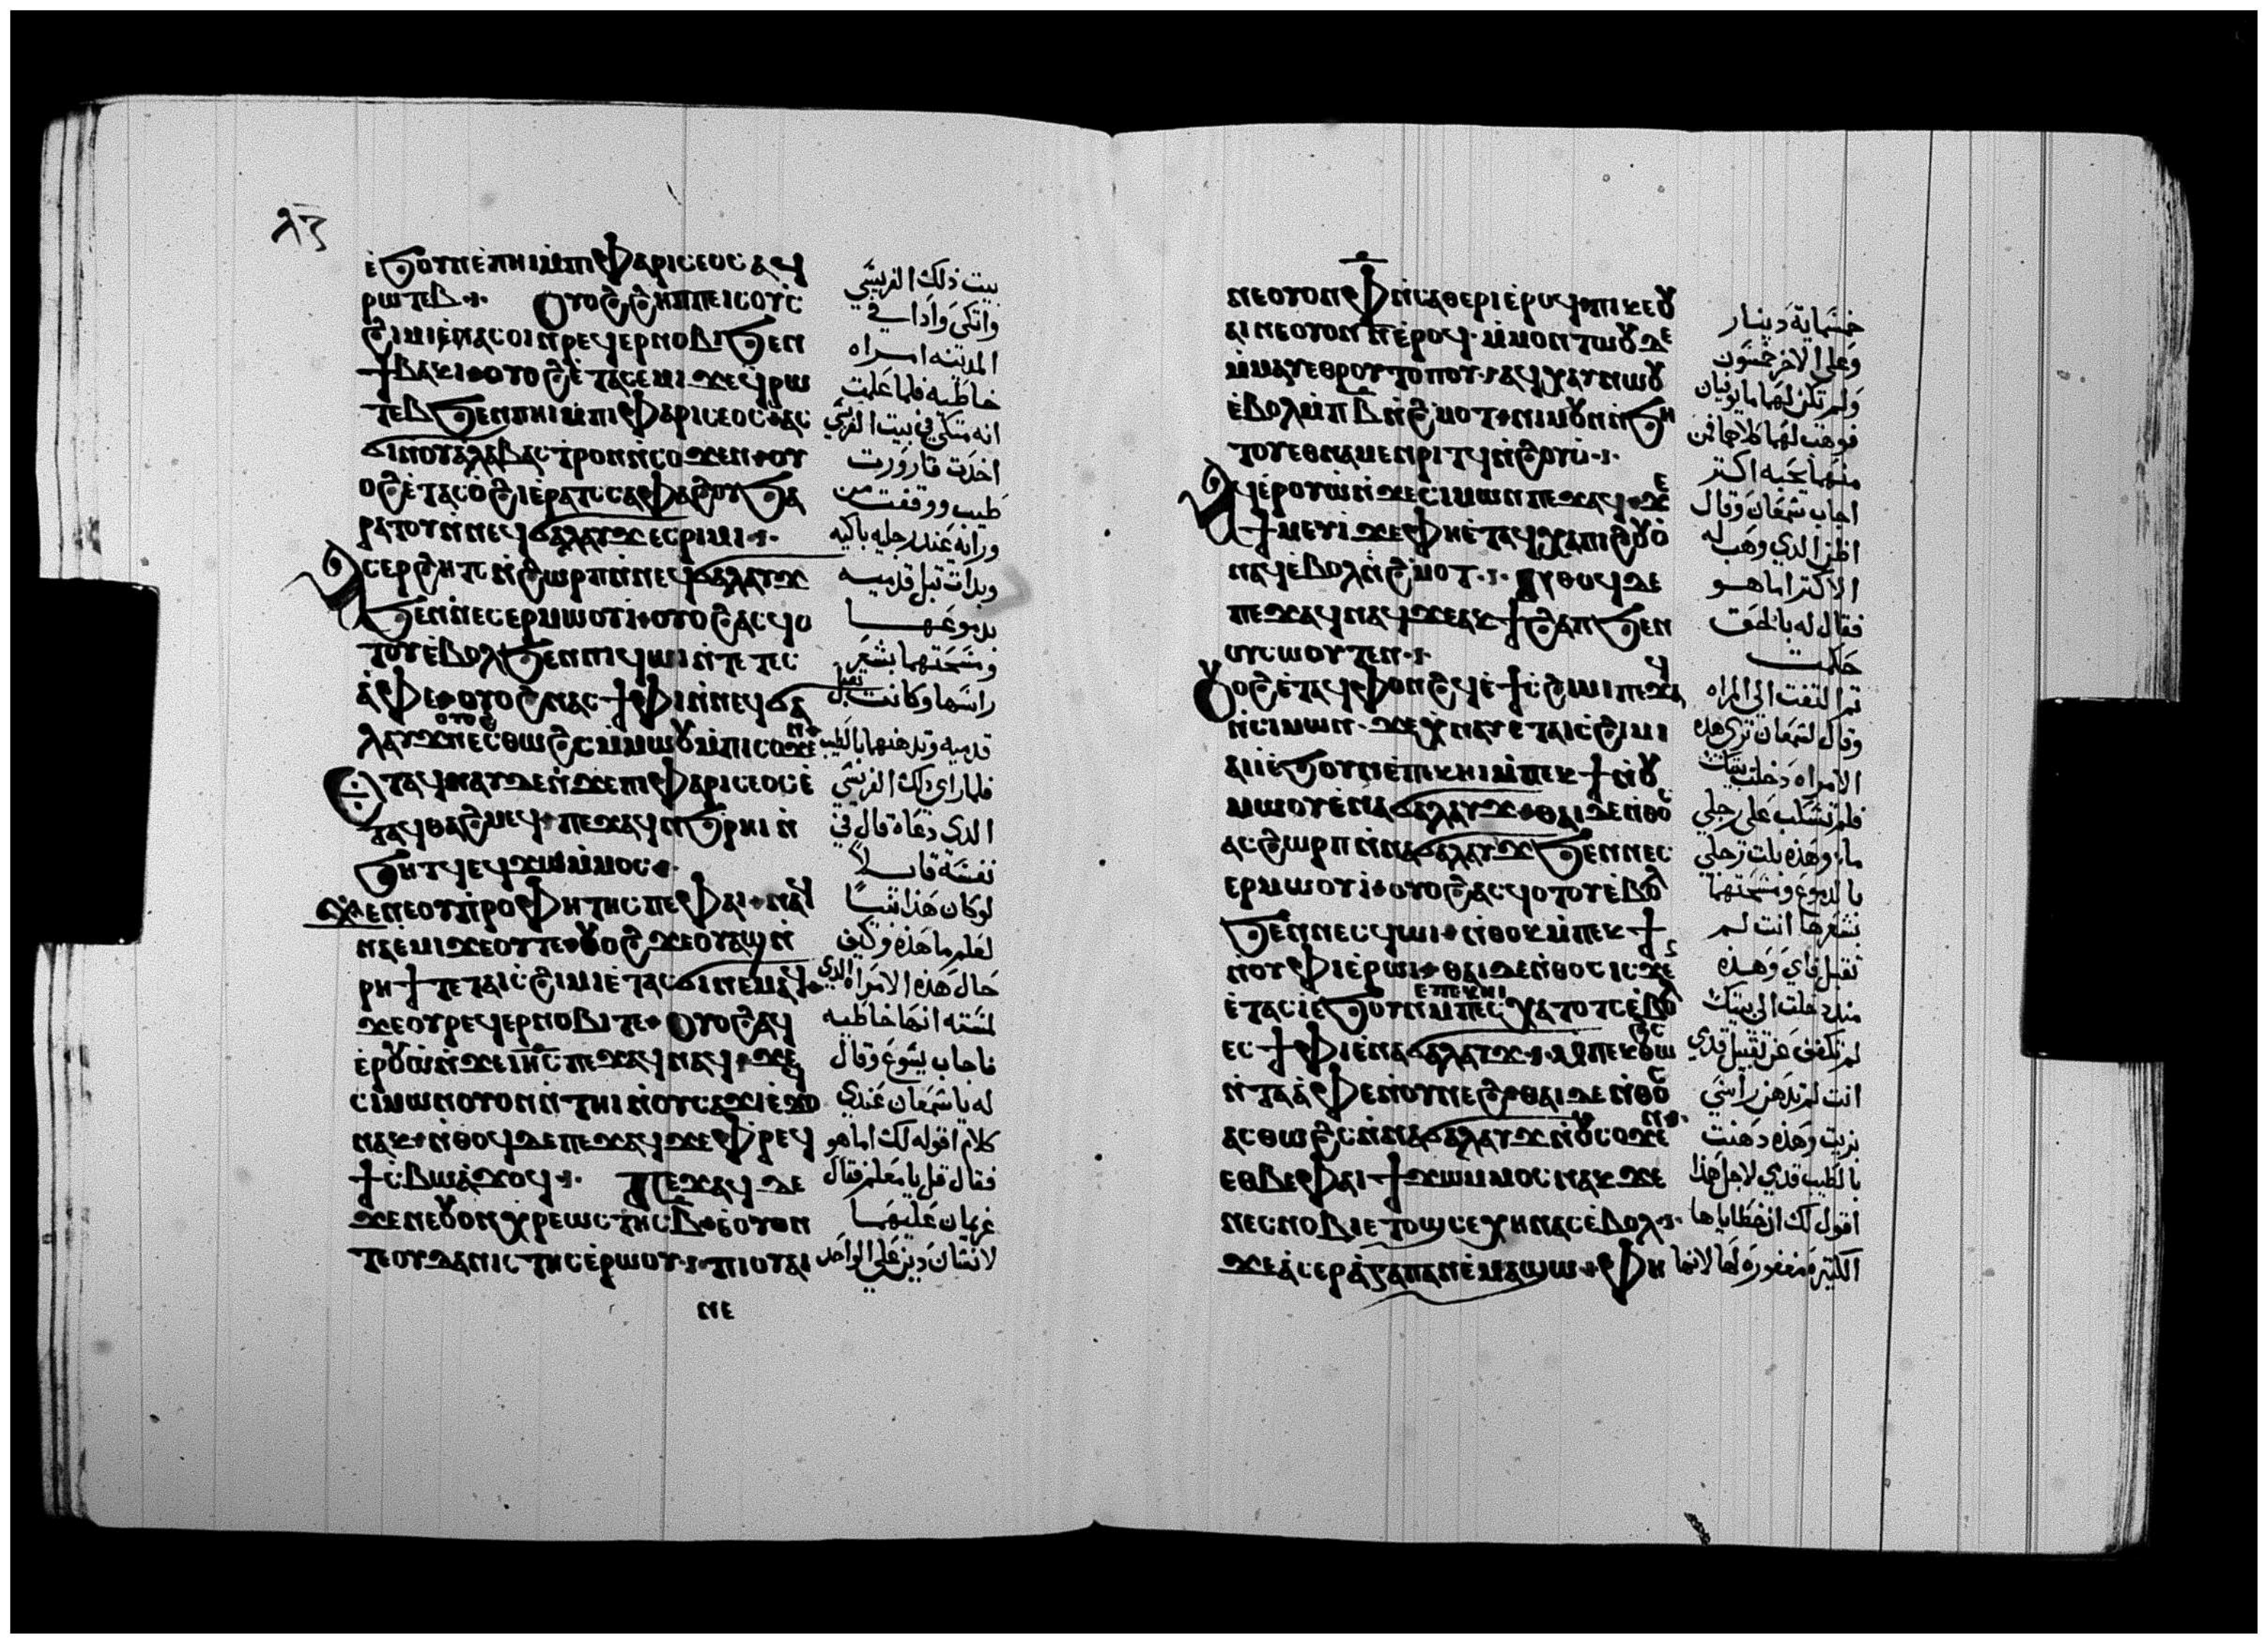 ⲗ̅ⲍ̅
ⲉ̀ϧⲟⲩⲛⲉ̀ⲡⲏⲓⲙ̀ⲡⲓⲫⲁⲣⲓⲥⲉⲟⲥⲁϥ
ⲣⲱⲧⲉⲃ· ⲟⲩⲟϩϩⲏⲡⲡⲉⲓⲥⲟⲩⲥ̀
ϩⲓⲙⲓⲉ̀ⲛⲁⲥⲟⲓⲛⲣⲉϥⲉⲣⲛⲟⲃⲓϧⲉⲛ
ϯⲃⲁⲕⲓⲟⲩⲟϩⲉ̀ⲧⲁⲥⲉⲙⲓϫⲉϥⲣⲱ
ⲧⲉⲃϧⲉⲛⲡⲏⲓⲙ̀ⲡⲓⲫⲁⲣⲓⲥⲉⲟⲥⲁⲥ
ϭⲓⲛⲟⲩⲁⲗⲁⲃⲁⲥⲧⲣⲟⲛⲛ̀ⲥⲟϫⲉⲛⲟⲩ
ⲟϩⲉ̀ⲧⲁⲥⲟ̀ϩⲓⲉ̀ⲣⲁⲧⲥⲥⲁⲫⲁϩⲟⲩϧⲁ
ⲣⲁⲧⲟⲩⲛ̀ⲛⲉϥϭⲁⲗⲁⲩϫⲉⲥⲣⲓⲙⲓ·
ⲁⲥⲉⲣϩⲏⲧⲥⲛ̀ϩⲱⲣⲡⲛ̀ⲛⲉϥϭⲁⲗⲁⲩϫ
ϧⲉⲛⲛⲉⲥⲉⲣⲙⲱⲟⲩⲓ̀ⲟⲩⲟϩⲁⲥϥⲟ
ⲧⲟⲩⲉ̀ⲃⲟⲗϧⲉⲛⲡⲓϥⲱⲓⲛ̀ⲧⲉⲧⲉⲥ
ⲁ̀ⲫⲉⲟⲩⲟϩⲛⲁⲥϯⲫⲓⲛ̀ⲛⲉϥϭⲁ
ⲗⲁⲩϫⲟⲩⲟϩⲛⲉⲥⲑⲱϩⲥⲙ̀ⲙⲱⲟⲩⲙ̀ⲡⲓⲥⲟϫⲉⲛ
ⲉⲧⲁϥⲛⲁⲩⲇⲉⲛ̀ϫⲉⲡⲓⲫⲁⲣⲓⲥⲉⲟⲥⲉ̀
ⲧⲁϥⲑⲁϩⲙⲉϥⲡⲉϫⲁϥⲛ̀ϧⲣⲏⲓⲛ̀
ϧⲏⲧϥⲉϥϫⲱⲙ̀ⲙⲟⲥ·
ϫⲉⲛⲉⲟⲩⲡ̀ⲣⲟⲫⲏⲧⲏⲥⲡⲉⲫⲁⲓⲛⲁϥ
ⲛⲁⲉⲙⲓϫⲉⲟⲩⲧⲉⲟⲩⲟϩϫⲉⲟⲩⲁϣⲛ̀
ⲣⲏϯⲧⲉⲧⲁⲓⲥ̀ϩⲓⲙⲓⲉ̀ⲧⲁⲥϭⲓⲛⲉⲙⲁϥ
ϫⲉⲟⲩⲣⲉϥⲉⲣⲛⲟⲃⲓⲧⲉⲟⲩⲟϩⲁϥ
ⲉ̀ⲣⲟⲩⲱⲛ̀ϫⲉⲓⲏⲥⲡⲉϫⲁϥⲛⲁϥϫⲉ
ⲥⲓⲙⲱⲛⲟⲩⲟⲛⲛ̀ⲧⲏⲓⲛ̀ⲟⲩⲥⲁϫⲓⲉ̀ϫⲟ
ⲛⲁⲕⲛ̀ⲑⲟϥⲇⲉⲡⲉϫⲁϥϫⲉⲫⲣⲉϥ
ϯⲥ̀ⲃⲱⲁ̀ϫⲟϥ· ⲡⲉϫⲁϥⲇⲉ
ϫⲉⲛⲉⲟⲩⲟⲛⲭⲣⲉⲱⲥⲧⲏⲥⲃ̅ⲉ̀ⲟⲩⲟⲛ
ⲧⲉⲟⲩⲇⲁⲛⲓⲥⲧⲏⲥⲉ̀ⲣⲱⲟⲩ·ⲡⲓⲟⲩⲁⲓ
ⲛⲉ
بيت ذلك الفريسي
واتكى واذا في
المدينه امراه
خاطيه فلما علمت
انه متكي في بيت الفريسي
اخدت قارورت
طيب ووقفت من
ورايه عند رجليه باكيه
وبدات تبل قدميه
بدموعها
ومسحتهما بشعر
راسها وكانت تقبل
قدميه وتدهنهما بالطيب
فلما راى ذلك الفريسي
الدي دعاه قال في
نفسه قايلاً
لو كان هذا نبيا
لعلم ما هذه وكيف
حال هذه الامراه الدي
لمسته انها خاطيه
فاجاب يسوع وقال
له يا سمعان عندي
كلام اقوله لك اما هو
فقال قل يا معلم فقال
غريمان عليهما
لانسان دين على الواحد
ⲛⲉⲟⲩⲟⲛⲫ̅ⲛ̀ⲥⲁⲑⲉⲣⲓⲉ̀ⲣⲟϥⲡⲓⲕⲉⲟⲩ
ⲁⲓⲛⲉⲟⲩⲟⲛⲛ̅ⲉ̀ⲣⲟϥ·ⲙ̀ⲙⲟⲛⲧⲱⲟⲩⲇⲉ
ⲙ̀ⲙⲁⲩⲉⲑⲣⲟⲩⲧⲟⲡⲟⲩ·ⲁϥⲭⲁⲩⲛⲱⲟⲩ
ⲉ̀ⲃⲟⲗⲙ̀ⲡⲃ̅ⲛ̀ϩ̀ⲙⲟⲧⲛⲓⲙⲟⲩⲛⲛ̀ϧⲏ
ⲧⲟⲩⲉⲑⲛⲁⲙⲉⲛⲣⲓⲧϥⲛ̀ϩⲟⲩⲟ̀·
ⲁϥⲉⲣⲟⲩⲱⲛ̀ϫⲉⲥⲓⲙⲱⲛⲡⲉϫⲁϥϫⲉ
ϯⲙⲉⲩⲓ̀ϫⲉⲫⲏⲉ̀ⲧⲁϥⲭⲁⲡⲓϩⲟⲩⲟ̀
ⲛⲁϥⲉ̀ⲃⲟⲗⲛ̀ϩ̀ⲙⲟⲧ· ⲛ̀ⲑⲟϥⲇⲉ
ⲡⲉϫⲁϥⲛⲁϥϫⲉⲁⲕϯϩⲁⲡϧⲉⲛ
ⲟⲩⲥⲱⲟⲩⲧⲉⲛ·
ⲟⲩⲟϩⲉ̀ⲧⲁϥⲫⲟⲛϩϥⲉ̀ϯⲥ̀ϩⲓⲙⲓⲡⲉϫⲁϥ
ⲛ̀ⲥⲓⲙⲱⲛ·ϫⲉⲭ̀ⲛⲁⲩⲉ̀ⲧⲁⲓⲥ̀ϩⲓⲙⲓ
ⲁⲓⲓ̀ⲉ̀ϧⲟⲩⲛⲉ̀ⲡⲉⲕⲏⲓⲙ̀ⲡⲉⲕϯⲙ̀ⲟⲩ
ⲙⲱⲟⲩⲉ̀ⲛⲁϭⲁⲗⲁⲩϫⲑⲁⲓⲇⲉⲛ̀ⲑⲟⲥ
ⲁⲥϩⲱⲣⲡⲛ̀ⲛⲁϭⲁⲗⲁⲩϫϧⲉⲛⲛⲉⲥ
ⲉⲣⲙⲱⲟⲩⲓ̀ⲟⲩⲟϩⲁⲥϥⲟⲧⲟⲩⲉ̀ⲃⲟⲗ
ϧⲉⲛⲛⲉⲥϥⲱⲓⲛ̀ⲑⲟⲕⲙ̀ⲡⲉⲕϯ
ⲛ̀ⲟⲩⲫⲓⲉ̀ⲣⲱⲓⲑⲁⲓⲇⲉⲛ̀ⲑⲟⲥⲓⲥϫⲉ
ⲉ̀ⲧⲁⲥⲓ̀ⲉ̀ϧⲟⲩⲛⲉⲡⲉⲕⲏⲓⲙ̀ⲡⲉⲥⲭⲁⲧⲟⲧⲥⲉ̀ⲃⲟⲗ
ⲉⲥϯⲫⲓⲉ̀ⲛⲁϭⲁⲗⲁⲩϫ·ⲙ̀ⲡⲉⲕⲑⲱϩⲥ
ⲛ̀ⲧⲁⲁ̀ⲫⲉⲛ̀ⲟⲩⲛⲉϩⲑⲁⲓⲇⲉⲛ̀ⲑⲟⲥ
ⲁⲥⲑⲱϩⲥⲛ̀ⲛⲁϭⲁⲗⲁⲩϫⲛ̀ⲟⲩⲥⲟϫⲉⲛ
ⲉⲑⲃⲉⲫⲁⲓϯϫⲱⲙ̀ⲙⲟⲥⲛⲁⲕϫⲉ
ⲛⲉⲥⲛⲟⲃⲓⲉⲧⲟϣⲥⲉⲭⲏⲛⲁⲥⲉ̀ⲃⲟⲗ·
ϫⲉⲁ̀ⲥⲉⲣⲁ̀ⲅⲁⲡⲁⲛⲉ̀ⲙⲁϣⲱⲫⲏ
خمسماية دينار
وعلى الاخر خمسون
ولم تكن لهما ما يوفيان
فوهب لهما كلاهما فمن
منهما يحبه اكتر
اجاب سمعان وقال
اظن الدي وهب له
الاكتر اما هو
فقال له بالحق
حكمت
تم التفت الى المراه
وقال لسمعان ترى هذه
الامراه دخلت بيتك
فلم تسكب على رجلي
ماء وهذه بلت رجلي
بالدموع ومسحتهما
بشعرها انت لم
تقبل فاي وهذه
مند دخلت الى بيتك
لم تكفف عن تقبيل قدمي
انت لم تدهن راسي
بزيت وهذه دهنت
بالطيب قدمي لاجل هذا
اقول لك ان خطاياها
الكتيره مغفوره لها لانها